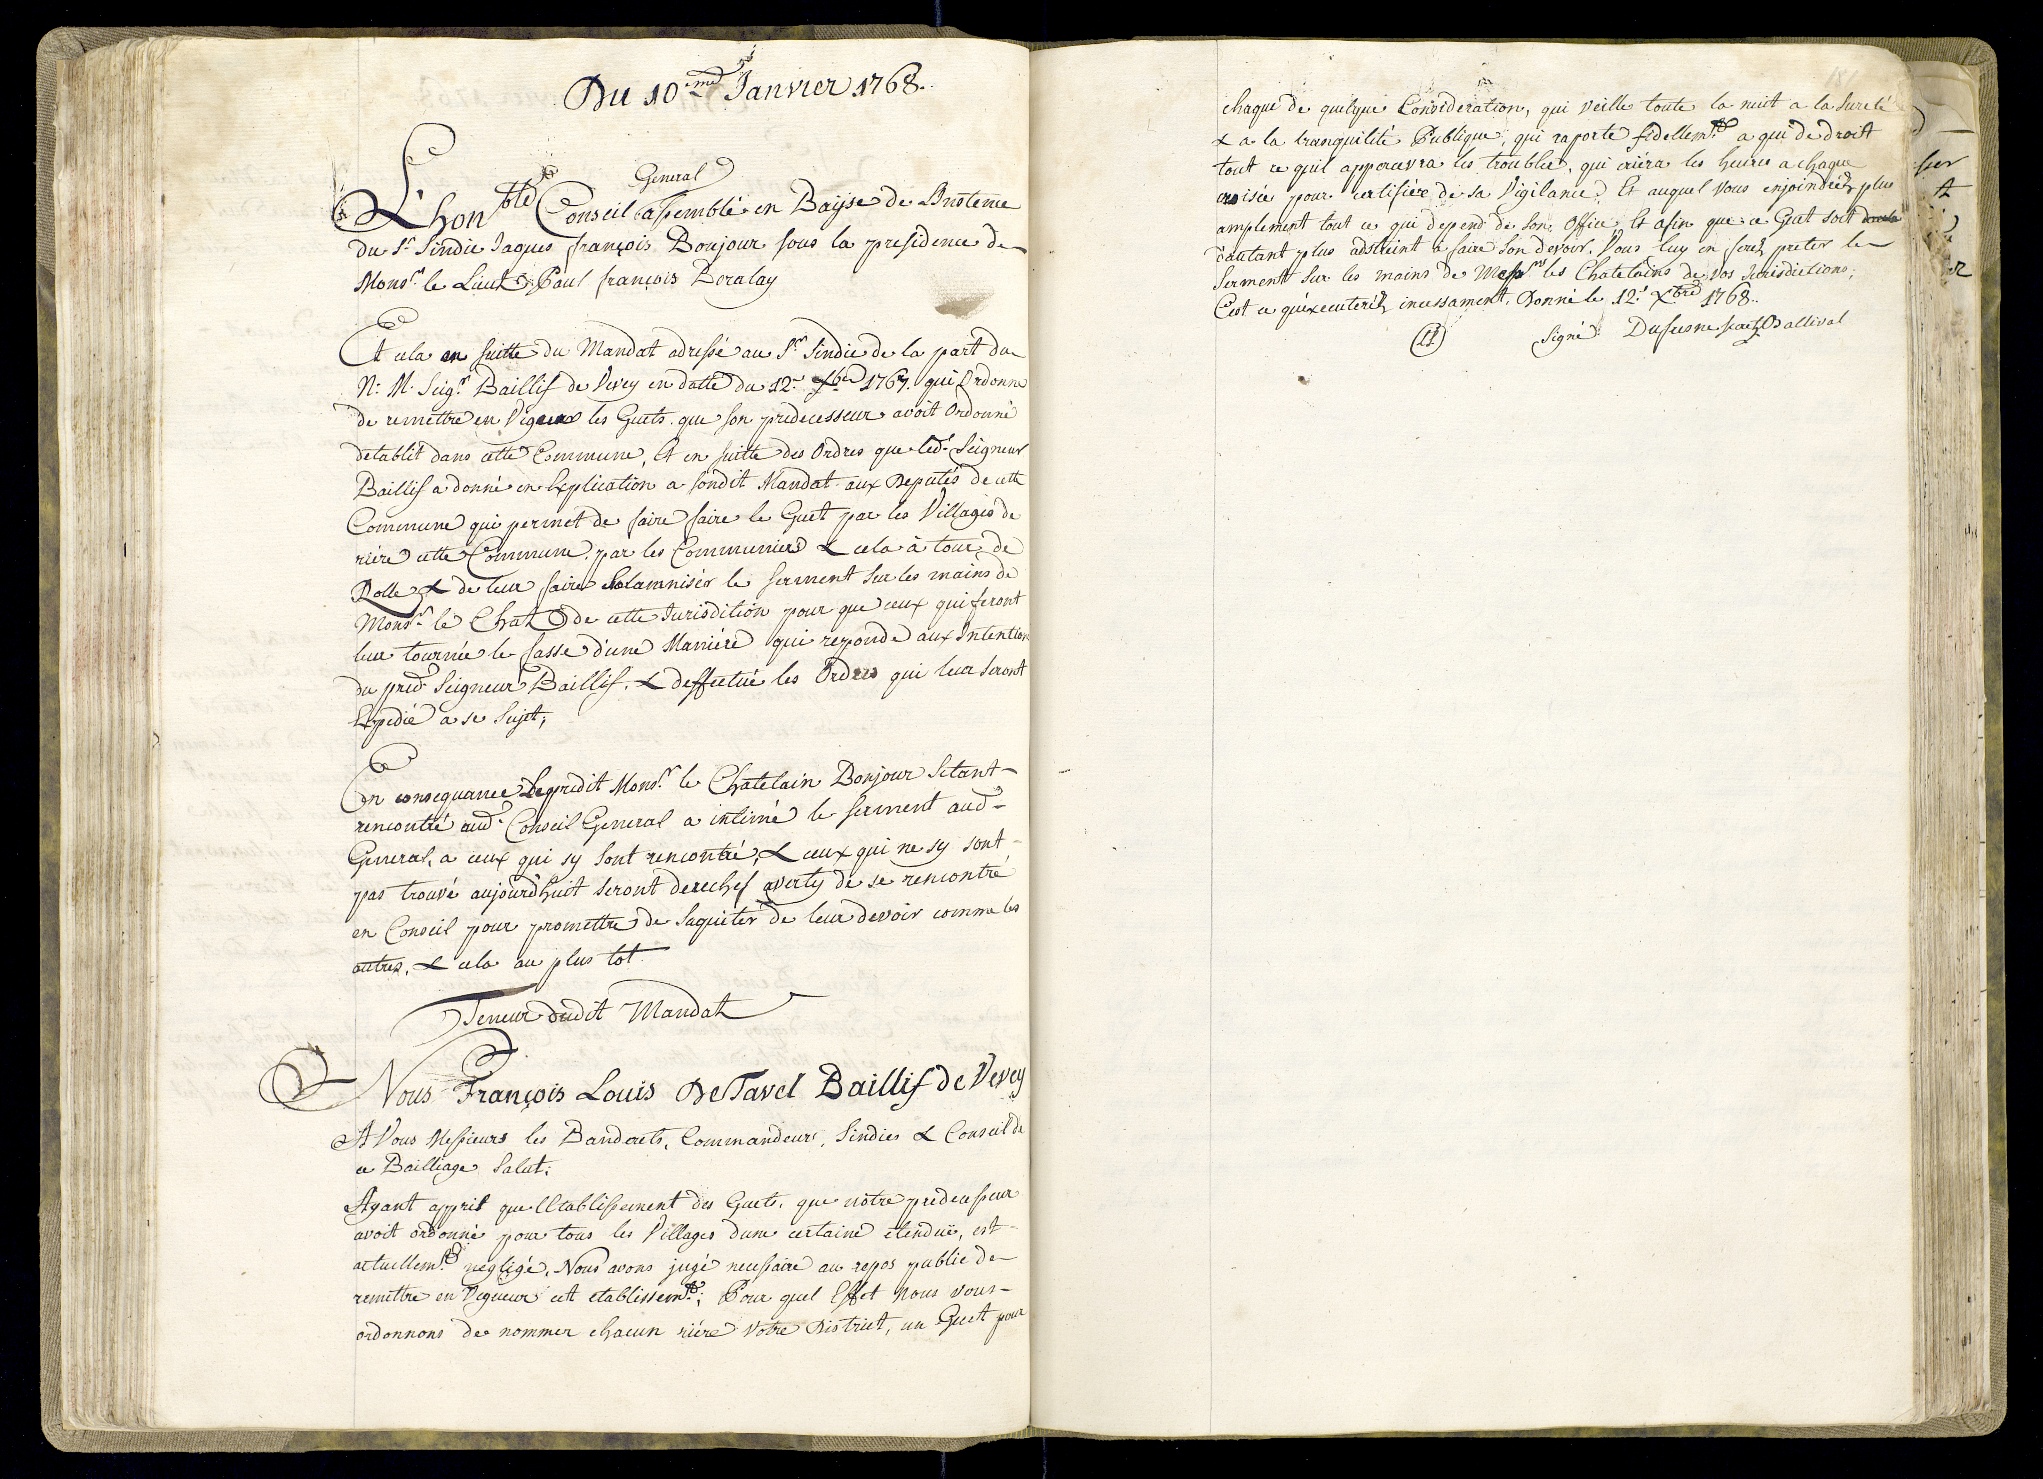 Du 10.me Janvier 1768.
General
Lhon.ble Conseil assemblé en Bayse de L'nsteme
du S.r Sindic Jaques françois Bonjour sous la presidence de
Mons.r le Lieut.t Paul françois Deralay
Et cela en suitte du Mandat adressé au S.r Sindic de la part du
N. M. Seig.r Baillif de Vevey en datte du 12.e Xbre 1767. qui Ordonne
de remettre en Vigeur les Guets que son predecesseur avoit Ordonné
detablit dans cette Commune, Et en suitte des Ordres que led.t Seigneur
Baillif a donné en Explication a sondit Mandat aux Deputés de cette
Commune qui permet de faire faire le Guet par les Villages de
riére cette Commune, par les Communiers & cela à tour de
Rolle, & de leur faire Solamniser le serment sur les mains de
Mons.r le Chat. de cette Jurisdition pour que ceux qui feront
leur tournée le fasse d'une Maniére qui reponde aux Intention
du pred.t Seigneur Baillif. & d'effectué les Ordres qui leur seront
Expedié a se sujet;
En consequance Lepredit Mons.r le Chatelain Bonjour setant
rencontré aud.t Conseil General a intimé le serment aud.
General, a ceux qui sy sont rencontré, & ceux qui ne sy sont
pas trouvé aujourd'huit seront derechef averty de se rencontré
en Conseil pour promettre de saquiter de leur devoir comme les
autres, & cela au plus tot
Teneur dudit Mandat
Nous François Louis De Tavel Baillif de Vevey
A Vous Messieurs les Banderets, Commandeurs, Sindics & Conseil de
ce Bailliage Salut;
Ayant apprit que l'Etablissement des Guets, que nôtre predecesseur
avoit ordonné pour tous les Villages d'une certaine étenduë, est
actuellem.t negligé, Nous avons jugé necessaire au repos public de
remettre en Vigueur cet etablissem.t; Pour quel Effet Nous vous
ordonnons de nommer chacun riére Votre District, un Guet pour
181
chaque de quelque Consideration, qui veille toute la nuit a la sureté
& a la tranquilité Publique, qui raporte fidellem.t a qui de droit
tout ce quil appercevra les troubler, qui criéra les heures a chaque
croisée pour certifier de sa Vigilance. Et auquel Vous enjoindréz plus
amplement tout ce qui depend de son Office, Et afin que ce Guet soit
d'autant plus adstreint a faire son devoir, Vous luy en feréz preter le
Serment sur les mains de Mess.rs les Chatelains de Vos Jurisdictions;
C'est ce qu'executeréz incessament, Donné le 12.e Xbre 1768.
Signé Dufresne secret. Ballival